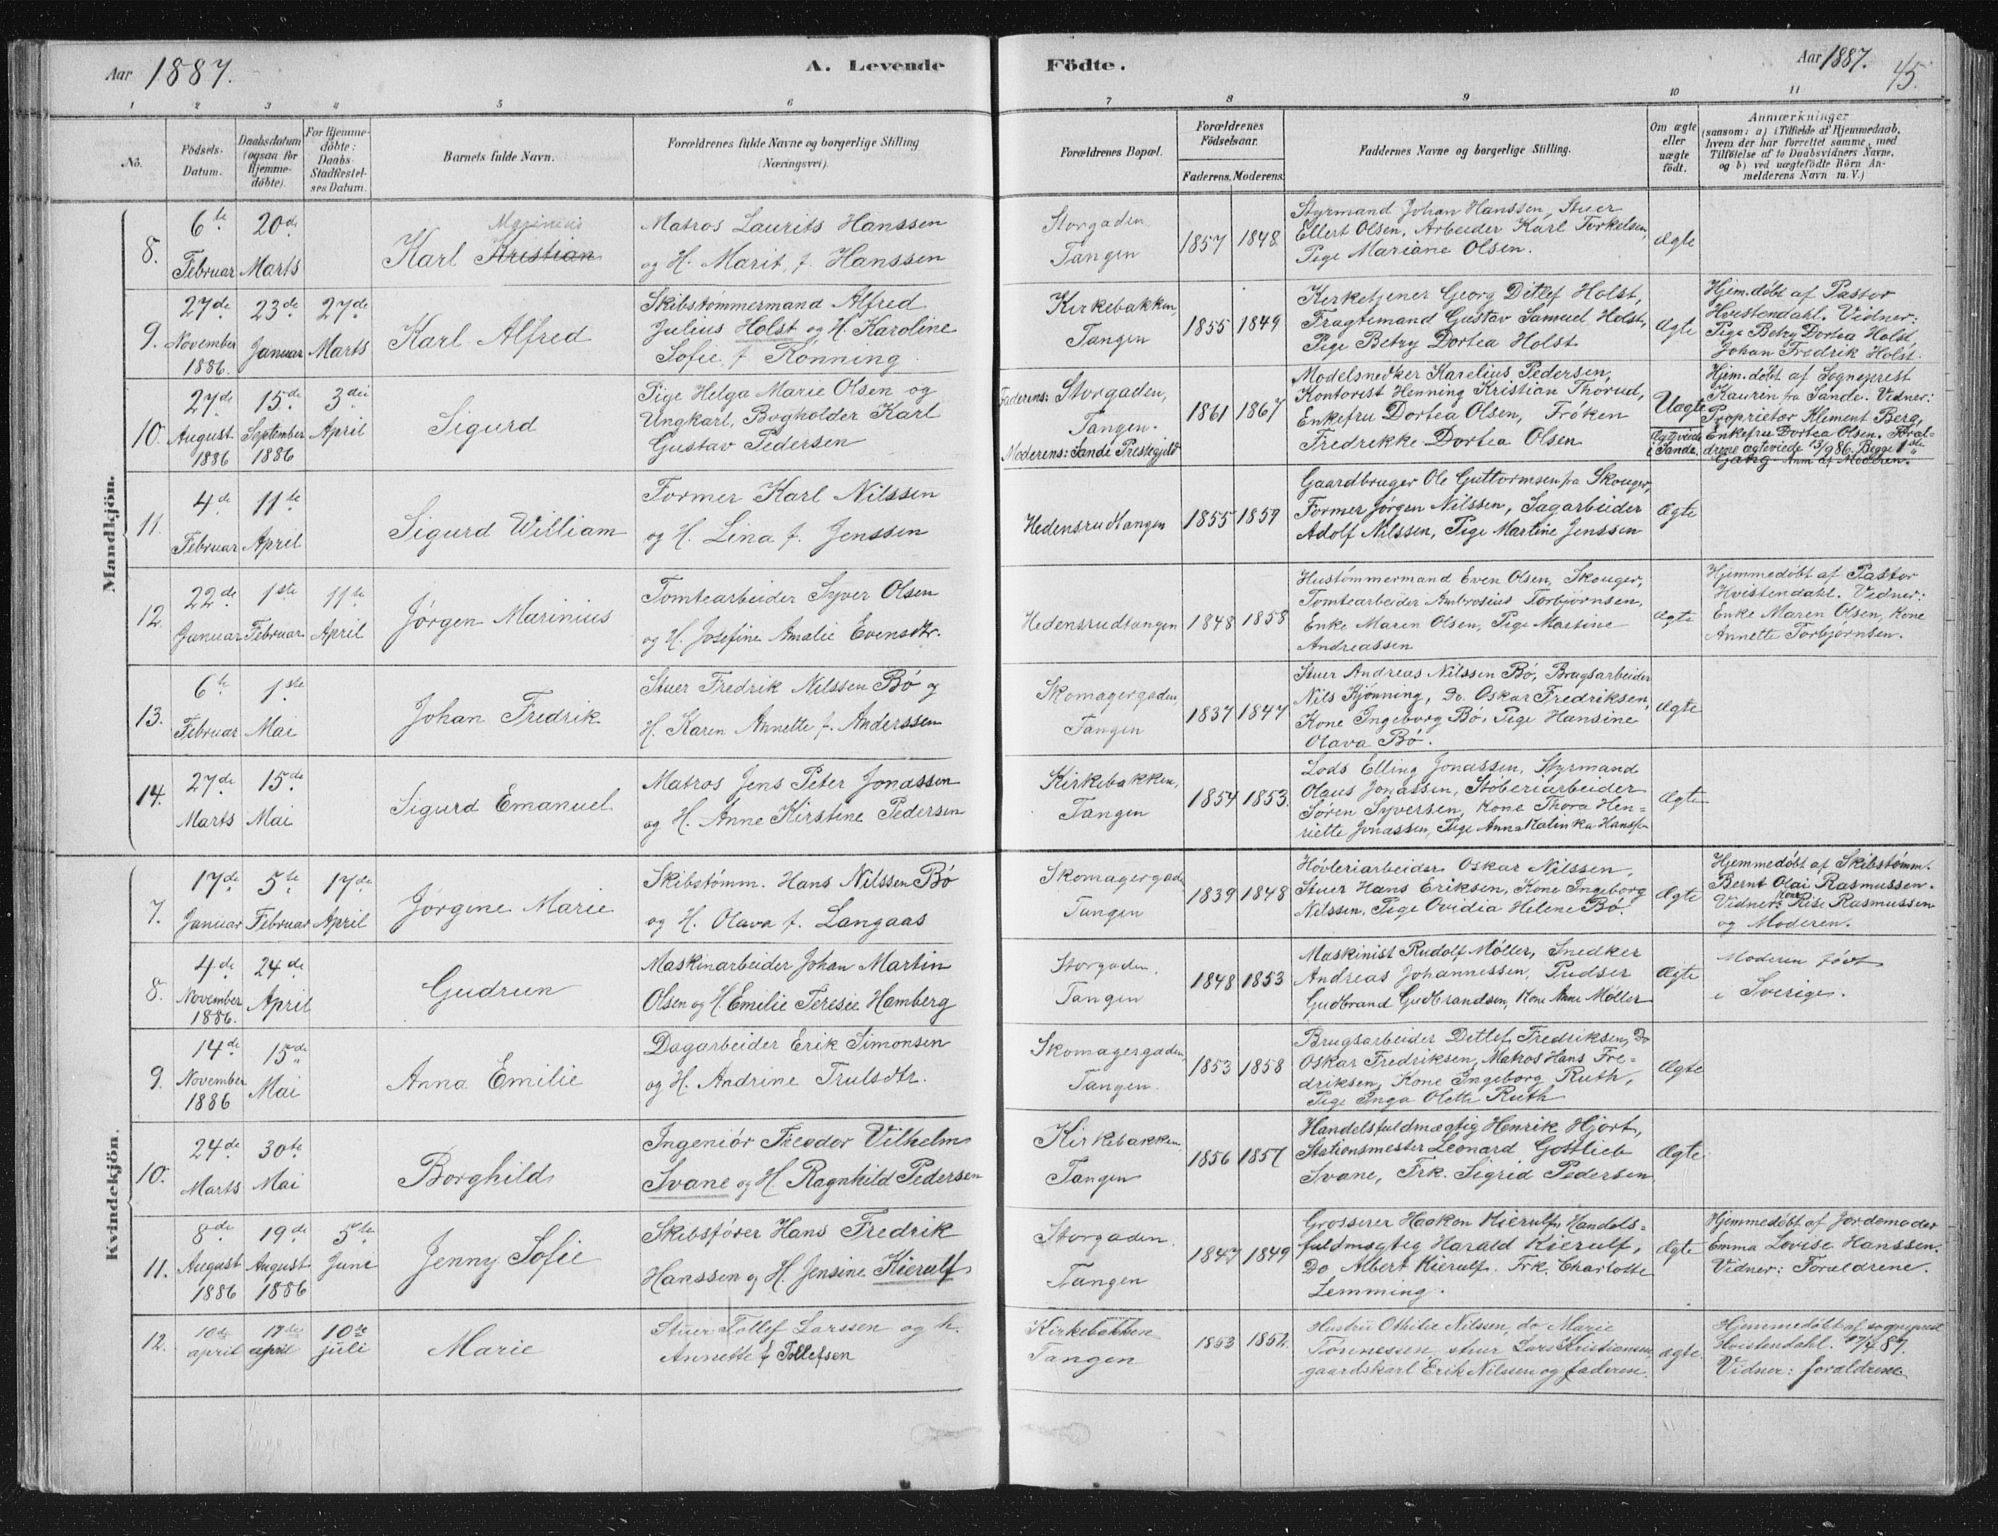 Aar 1887.
A. Levende
Födte.
Aar 1887.
45.
1 2 3 4 5 6 7 8 9 10 11
No.
Födsels-
Datum.
Daabsdatum
(ogsaa for
Hjemme-
döbte).
For Hjemme-
döbte:
Daabs-
Stadfæstel-
ses Datum.
Barnets fulde Navn.
Forældrenes fulde Navne og borgerlige Stilling
(Næringsvei).
Forældrenes Bopæl.
Forældrenes
Födselsaar.
Faderens. Moderens.
Faddernes Navne og borgerlige Stilling.
Om ægte
eller
uægte
födt.
Anmærkninger
(saasom: a) i Tilfælde af Hjemmedaab,
hvem der har forrettet samme, med
Tilföielse af to Daabsvidners Navne,
og b) ved uægtefödte Börn An-
melderens Navn m. V.)
Mandkjön.
8.
6te
Februar
20de
Marts
Marinius
Karl Kristian
Matros Laurits Hanssen
og H. Marit, f. Hanssen
Storgaden,
Tangen
1857 1848.
Styrmand Johan Hanssen, Stuer
Ellert Olsen, Arbeider Karl Torkelsen,
Pige Mariane Olsen.
Ægte
9.
27de
November
1886.
23de
Januar
27de
Marts
Karl Alfred
Skibstømmermand Alfred
Julius Holst og H. Karoline
Sofie f. Rønning
Kirkebakken,
Tangen
1855 1849
Kirketjener Georg Ditlef Holst,
Fragtemand Gustav Samuel Holst,
Pige Betzy Dortea Holst
Ægte
Hjem.døbt af Pastor
Hvistendahl. Vidner:
Pige Betzy Dortea Holst,
Johan Fredrik Holst.
10.
27de
August
1886
15de
September
1886
3die
April
Sigurd
Pige Helga Marie Olsen og
Ungkarl, Bogholder Karl
Gustav Pedersen
Faderens: Storgaden,
Tangen.
Moderens: Sande Prestegjeld
1861 1867
Modelsnedker Karelius Pedersen,
Kontorist Henning Kristian Thorud,
Enkefru Dortea Olsen, Frøken
Fredrikke Dortea Olsen
Uægte
Ægteviede
i Sande.
Hjm.døbt af Sogneprest
Kauren fra Sande. Vidner:
Proprietær Klement Berg,
Enkefru Dortea Olsen. Foræl-
drene ægteviede 13/9 86. Begge 1ste
Gang Anm. af Moderen.
11.
4de
Februar
11te
April
Sigurd William
Former Karl Nilssen
og H. Lina f. Jenssen
Hedensrudtangen
1855 1859
Gaardbruger Ole Guttormsen fra Skouger,
Former Jørgen Nilssen, Sagarbeider
Adolf Nilssen, Pige Martine Jenssen
Ægte
12.
22de
Januar
1ste
Februar
11te
April
Jørgen Marinius
Tomtearbeider Syver Olsen
og H. Josefine Amalie Evensdtr.
Hedensrudtangen
1848 1858
Hustømmermand Even Olsen, Skouger,
Tomtearbeider Ambrosius Torbjørnsen,
Enke Maren Olsen, Pige Martine
Andreassen
Ægte
Hjemmedøbt af Pastor
Hvistendahl. Vidner:
Enke Maren Olsen, Kone
Annette Torbjørnsen.
13.
6te
Februar
1ste
Mai
Johan Fredrik
Stuer Fredrik Nilssen Bø og
H. Karen Annette f. Anderssen
Skomagergaden,
Tangen
1837 1847
Stuer Andreas Nilssen Bø, Brugsarbeider
Nils Kjønning, Do Oskar Fredriksen,
Kone Ingeborg Bø, Pige Hansine
Olava Bø.
Ægte
14.
27de
Marts
15de
Mai
Sigurd Emanuel
Matros Jens Peter Jonassen
og H. Anne Kirstine Pedersen
Kirkebakken,
Tangen
1854 1853.
Lods Elling Jonassen, Styrmand
Olaus Jonassen, Støberiarbeider
Søren Syversen, Kone Thora Hen-
riette Jonassen, Pige Anna Katinka Hanss.
Ægte
Kvindekjön.
7.
17de
Januar
5te
Februar
17de
April
Jørgine Marie
Skibstømm. Hans Nilssen Bø
og H. Olava f. Langaas
Skomagergaden
Tangen
1839 1848
Høvleriarbeider Oskar Nilssen,
Stuer Hans Eriksen, Kone Ingeborg
Nilssen, Pige Ovidia Helene Bø.
Ægte
Hjemmedøbt af Skibstømm.
Bernt Olai Rasmussen.
Vidner: Kone Rise Rasmussen
og Moderen.
8.
4de
November
1886.
24de
April
Gudrun
Maskinarbeider Johan Martin
Olsen og H. Emilie Teresie Hamberg
Storgaden,
Tangen
1848 1853
Maskinist Rudolf Møller, Snedker
Andreas Johannessen, Pudser
Gudbrand Gudbrandsen, Kone Anne Møller
Ægte
Moderen født
i Sverige.
9.
14de
November
1886
15de
Mai
Anna Emilie
Dagarbeider Erik Simonsen
og H. Andrine Trulsdtr.
Skomagergaden,
Tangen.
1853 1858
Brugsarbeider Detlef Fredriksen, Do
Oskar Fredriksen, Matros Hans Fre-
driksen, Kone Ingeborg Ruth,
Pige Inga Olette Ruth
Ægte
10.
24de
Marts
30te
Mai
Borghild
Ingeniør Theodor Vilhelm
Svane og H. Ragnhild Pedersen
Kirkebakken,
Tangen
1856 1857
Handelsfuldmægtig Henrik Hjort,
Stationsmester Leonard Gottlieb
Svane, Frk. Sigrid Pedersen
Ægte
11.
8de
August
1886
19de
August
1886
5te
Juni
Jenny Sofie
Skibsfører Hans Fredrik
Hanssen og H. Jensine Kierulf
Storgaden.
Tangen
1847 1849
Grosserer Haakon Kierulf, Handels-
fuldmægtig Harald Kierulf,
Do Albert Kierulf. Frk. Charlotte
Lemming.
Ægte
Hjemmedøbt af Jordemoder
Emma Lovise Hanssen.
Vidner: Forældrene.
12.
10de
april
17de
april
10de
juli
Marie
Stuer Tollef Larssen og h.
Annette f Tollefsen
Kirkebakken
Tangen
1853 1852.
Hustru Othilie Nilssen, do Marie
Tønnesen, stuer Lars Kristiansen,
gaardskarl Erik Nilssen og faderen.
ægte
Hjemmedøbt af sogneprest
Hvistendahl. 17/4 87.
Vidner: forældrene